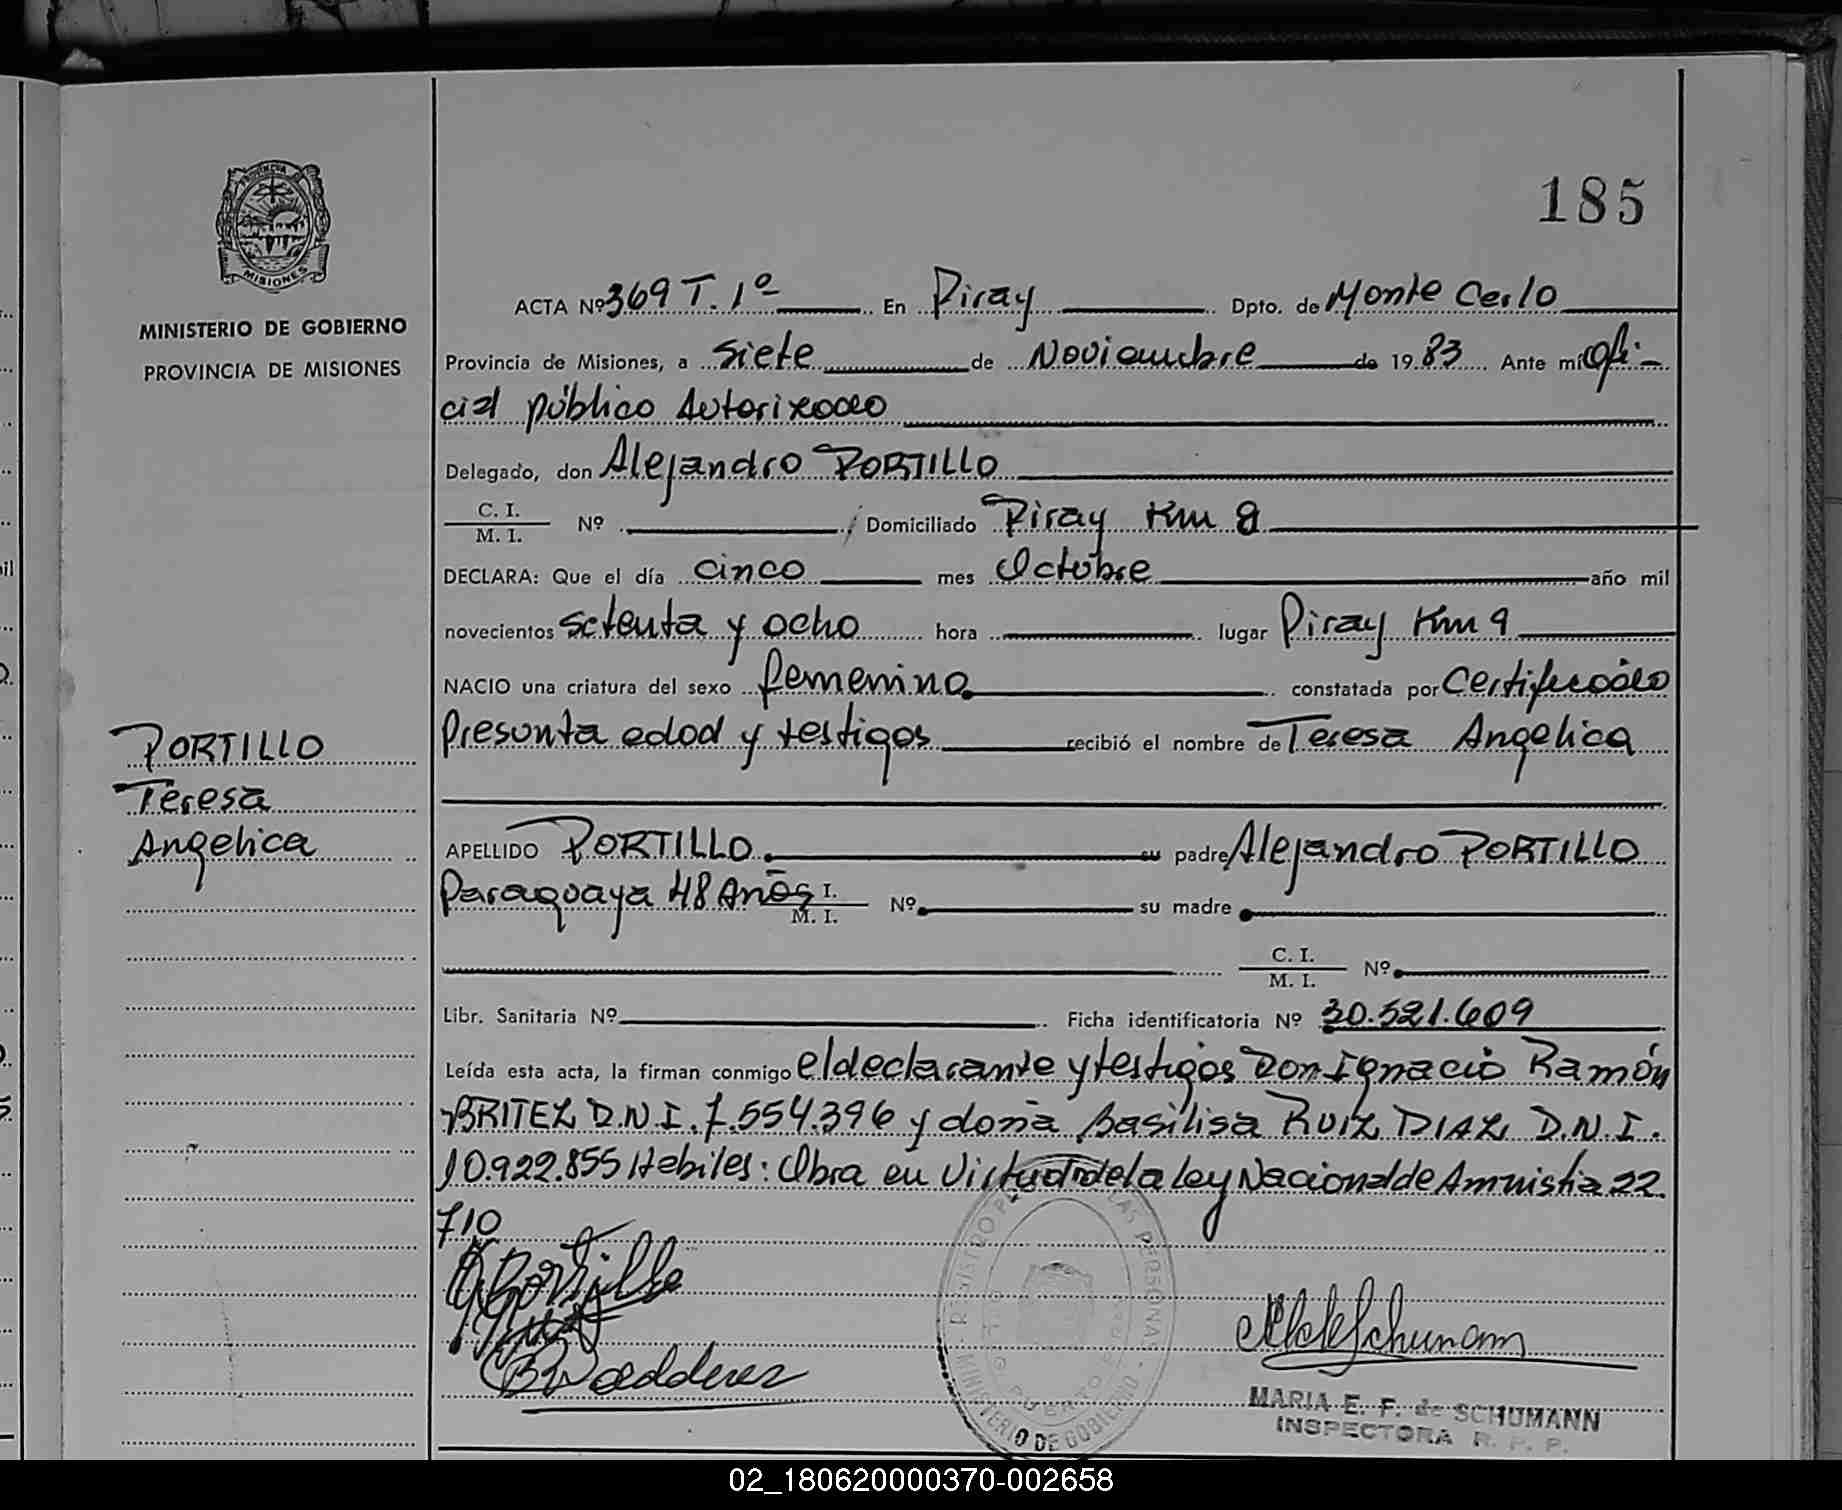 185
PROVINCIA DE
MISIONES
MINISTERIO DE GOBIERNO
PROVINCIA DE MISIONES
PORTILLO
Teresa
Angelica
ACTA Nº 369 T. 1º En Piray Dpto. de Monte Carlo
Provincia de Misiones, a siete de Noviembre de 1983. Ante mi ofi-
cial público Autorizado
Delegado, don Alejandro PORTILLO
C. I. / M. I. Nº Domiciliado Piray Km 8
DECLARA: Que el día cinco mes Octubre año mil
novecientos setenta y ocho hora lugar Piray Km 9
NACIO una criatura del sexo femenino constatada por Certificado
Presunta edad y testigos recibió el nombre de Teresa Angélica
APELLIDO PORTILLO su padre Alejandro PORTILLO
Paraguaya 48 Años C. I. / M. I. Nº su madre
C. I. / M. I. Nº
Libr. Sanitaria Nº Ficha identificatoria Nº 30.521.609
Leída esta acta, la firman conmigo el declarante y testigos Don Ignacio Ramón
BRITEZ D.N.I. 7.554.396 y doña Basilisa RUIZ DIAZ D.N.I.
10.922.855 Habiles: Obra en Virtud de la Ley Nacional de Amnistia 22.
710
A Portillo
MARIA E. F. de SCHUMANN
INSPECTORA R. P. P.
REGISTRO LAS PERSONAS
MINISTERIO DE GOBIERNO
PUERTO
02_180620000370-002658